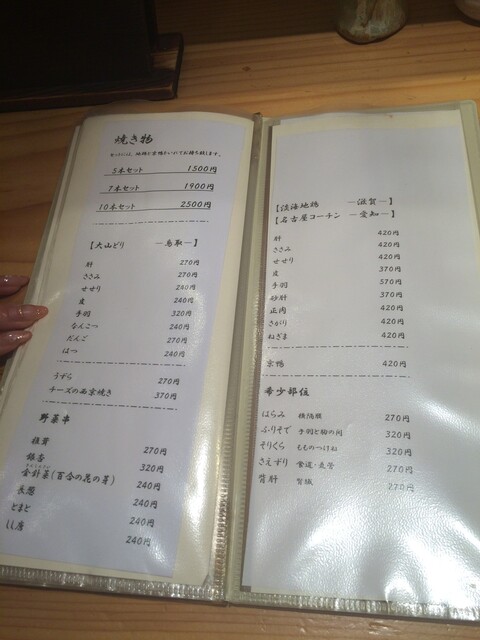 焼き物
セットには、地鶏と京鴨をいれてお持ち致します。
5本セット 1500円
7本セット 1900円
10本セット 2500円
【大山どり －鳥取－】
肝 270円
ささみ 270円
せせり 240円
皮 240円
手羽 320円
なんこつ 240円
だんご 270円
はつ 240円
うずら 270円
チーズの西京焼き 370円
野菜串
椎茸 270円
銀杏 320円
金針菜(百合の花の芽) 240円
長葱 240円
とまと 240円
しし唐 240円
【淡海地鶏 －滋賀－】
【名古屋コーチン －愛知－】
肝 420円
ささみ 420円
せせり 420円
皮 370円
手羽 570円
砂肝 370円
正肉 420円
さがり 420円
ねぎま 420円
京鴨 420円
希少部位
はらみ 横隔膜 270円
ふりそで 手羽と胸の間 320円
そりくら もものつけね 320円
さえずり 食道・気管 270円
背肝 腎臓 270円